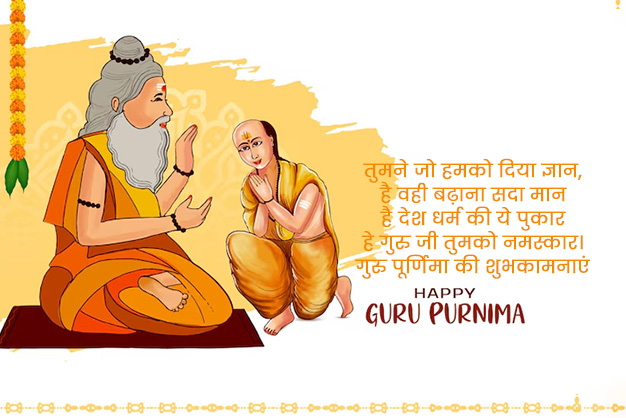 तुमने जो हमको दिया ज्ञान,
है वही बढ़ाना सदा मान
है देश धर्म की ये पुकार
हे गुरु जी तुमको नमस्कार।
गुरु पूर्णिमा की शुभकामनाएं
HAPPY
GURU PURNIMA